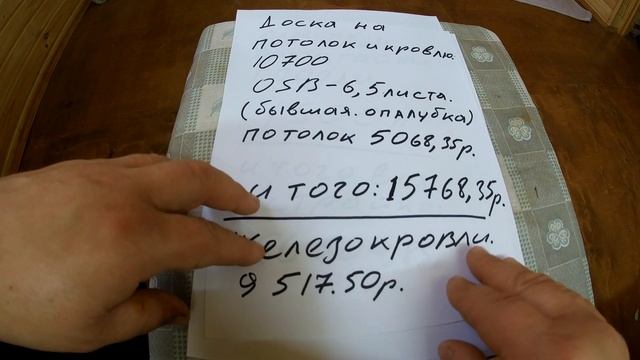 Доска на
потолок и кровлю.
10700
OSB-6,5 листа.
(бывшая.опалубка)
потолок 5068,35р.
итого: 15768,35р.
железо кровли.
9 517.50р.